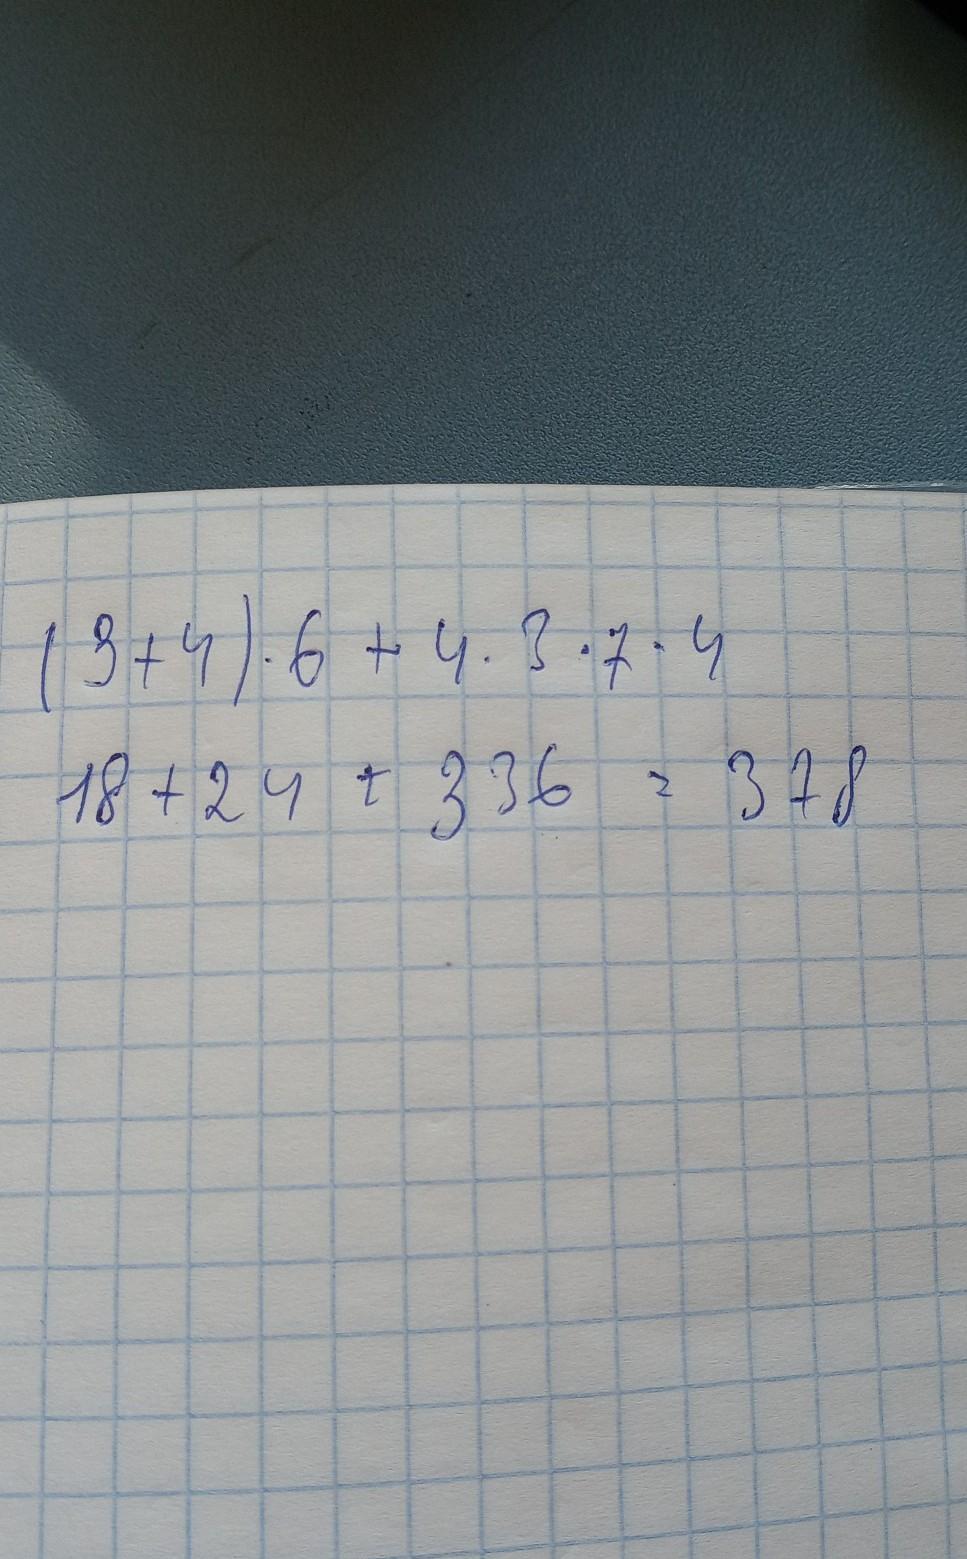 (3+4)·6 + 4·3·7·4
18+24 + 336 = 378